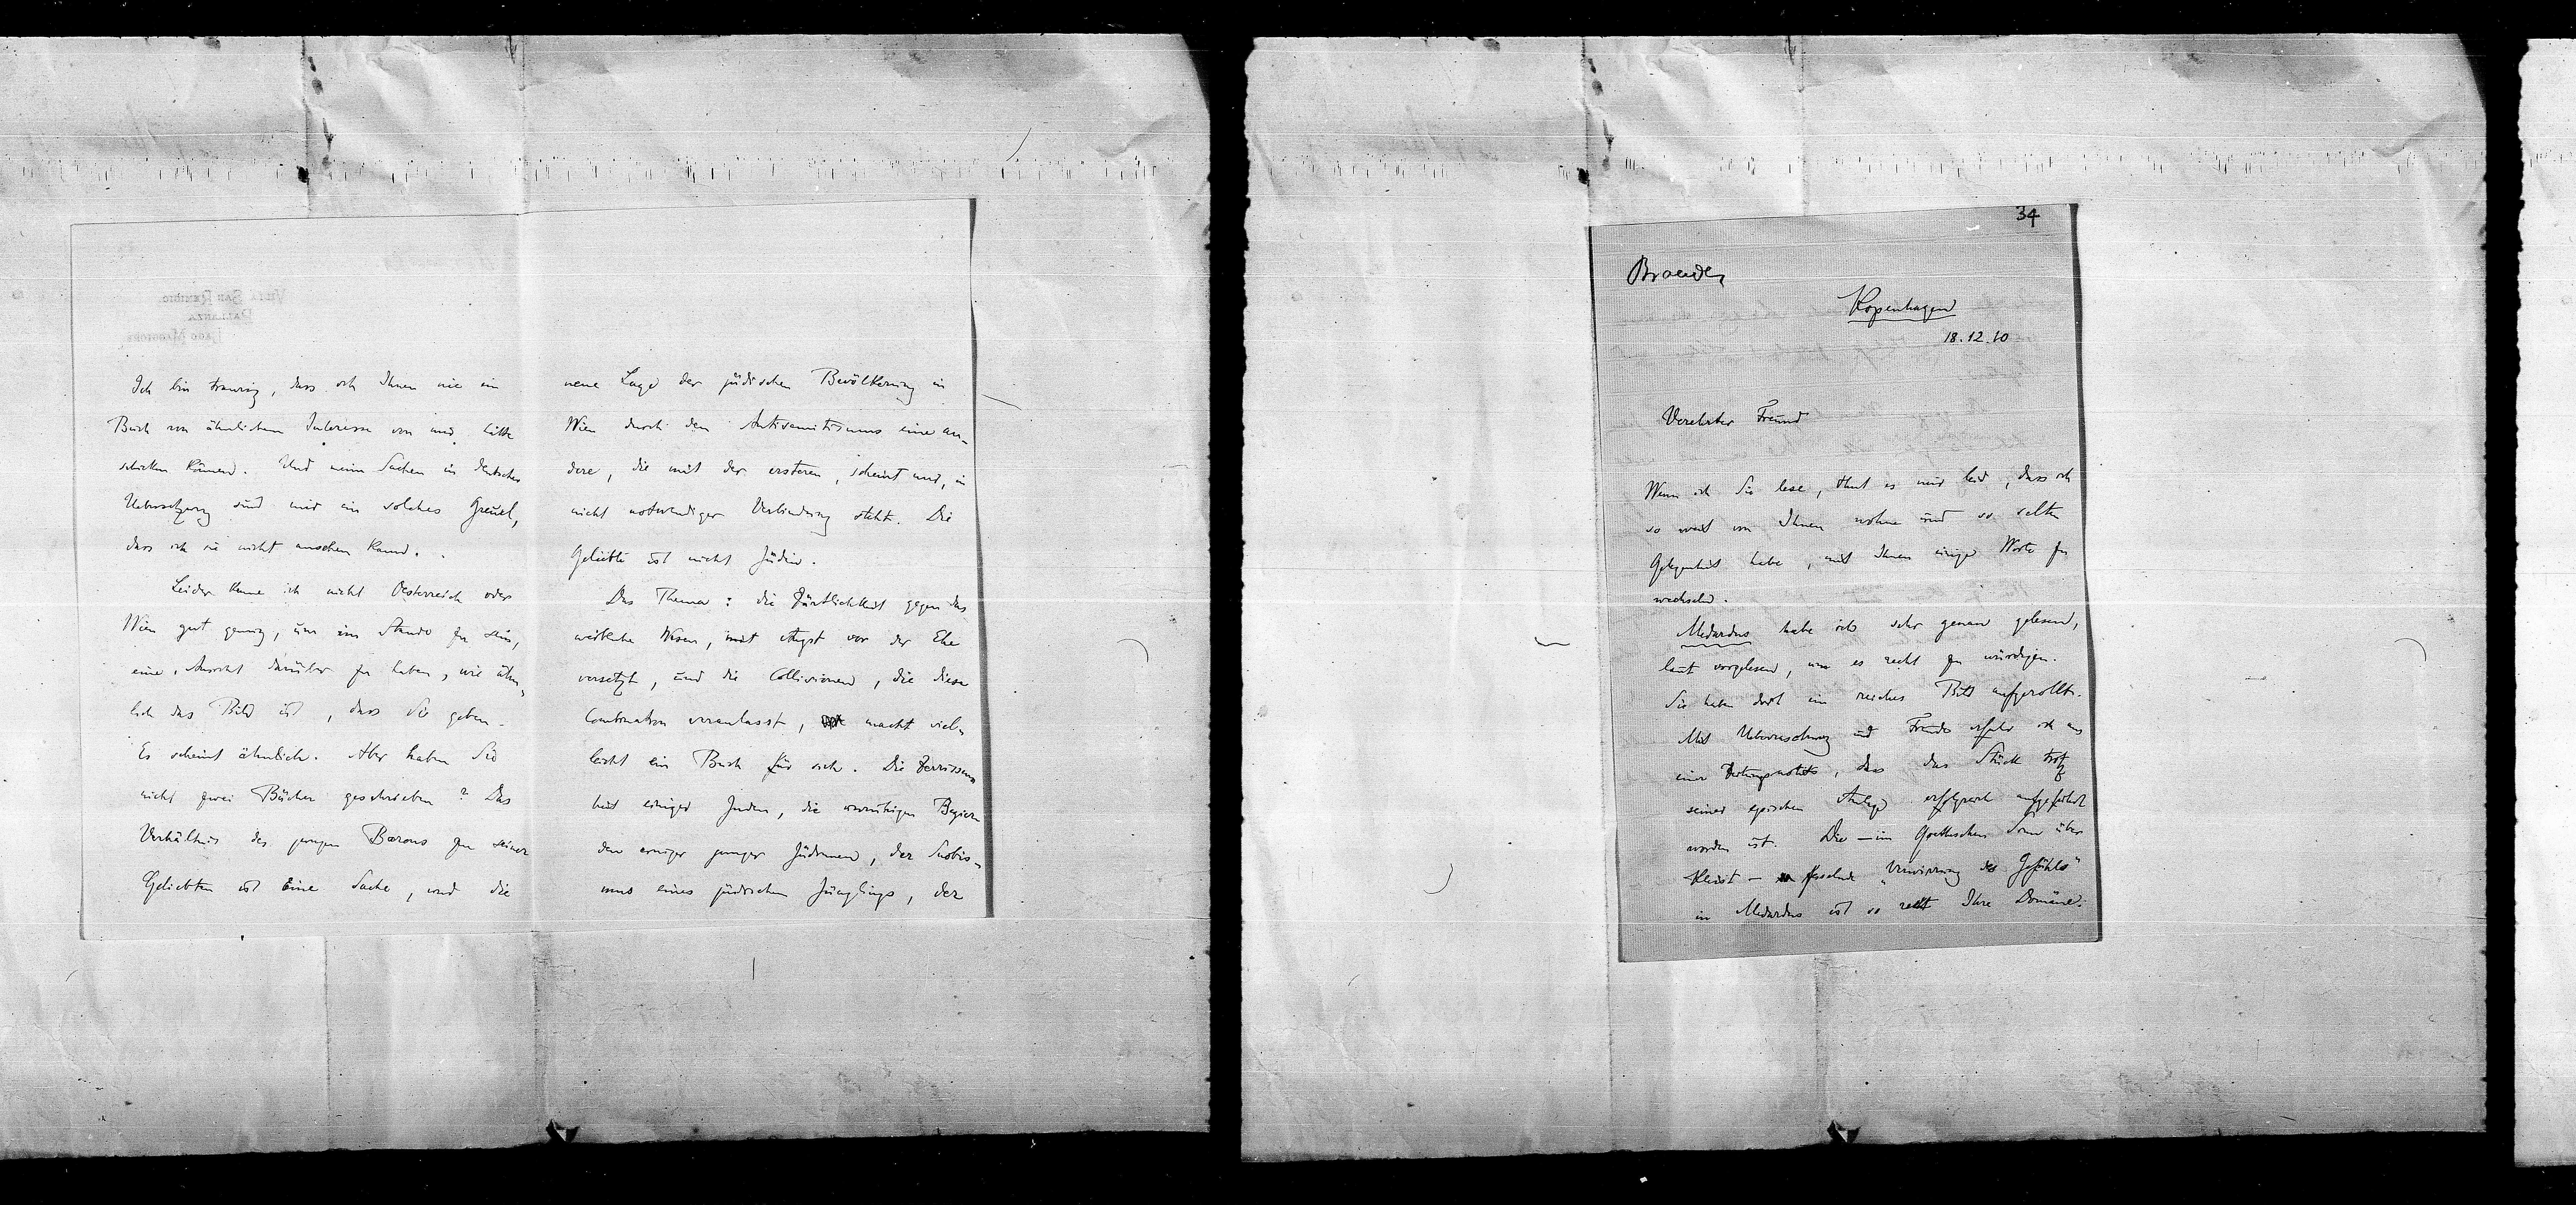 Ich bin traurig, dass ich Ihnen nie ein
Buch von ähnlichem Interesse von mir hätte
schicken können. Und meine Sachen in deutscher
Uebersetzung sind mir ein solches Greuel,
dass ich sie nicht ansehen kann.
Leider kenne ich nicht Oesterreich oder
Wien gut genug, um im Stande zu sein,
eine Ansicht darüber zu haben, wie ähn-
lich das Bild ist, dass Sie geben.
Es scheint ähnlich. Aber haben Sie
nicht zwei Bücher geschrieben? Das
Verhältnis des jungen Barons zu seiner
Geliebten ist Eine Sache, und die
neue Lage der jüdischen Bevölkerung in
Wien durch den Antisemitismus eine an-
dere, die mit der ersteren, scheint mir, in
nicht notwendiger Verbindung steht. Die
Geliebte ist nicht Jüdin.
Das Thema: die Zärtlichkeit gegen das
weibliche Wesen, mit Angst vor der Ehe
versetzt, und die Collisionen, die diese
Combination veranlasst, macht viel-
leicht ein Buch für sich. Die Zerrissen-
heit einiger Juden, die unruhigen Begier-
den einiger junger Jüdinnen, der Snobis-
mus eines jüdischen Jünglings, der
34
Brandes
Kopenhagen
18.12.10
Verehrter Freund
Wenn ich Sie lese, thut es mir leid, dass ich
so weit von Ihnen wohne und so selten
Gelegenheit habe, mit Ihnen einige Worte zu
wechseln.
Medardus habe ich sehr genau gelesen,
laut vorgelesen, um es recht zu würdigen.
Sie haben dort ein reiches Bild aufgerollt.
Mit Ueberraschung und Freude erfuhr ich aus
einer Zeitungsnotiz, dass das Stück trotz
seiner epischen Anlage erfolgreich aufgeführt
worden ist. Die – im Goetheschen Sinn über
Kleist – fesselnde „Verwirrung des Gefühls"
in Medardus ist so recht Ihre Domäne.